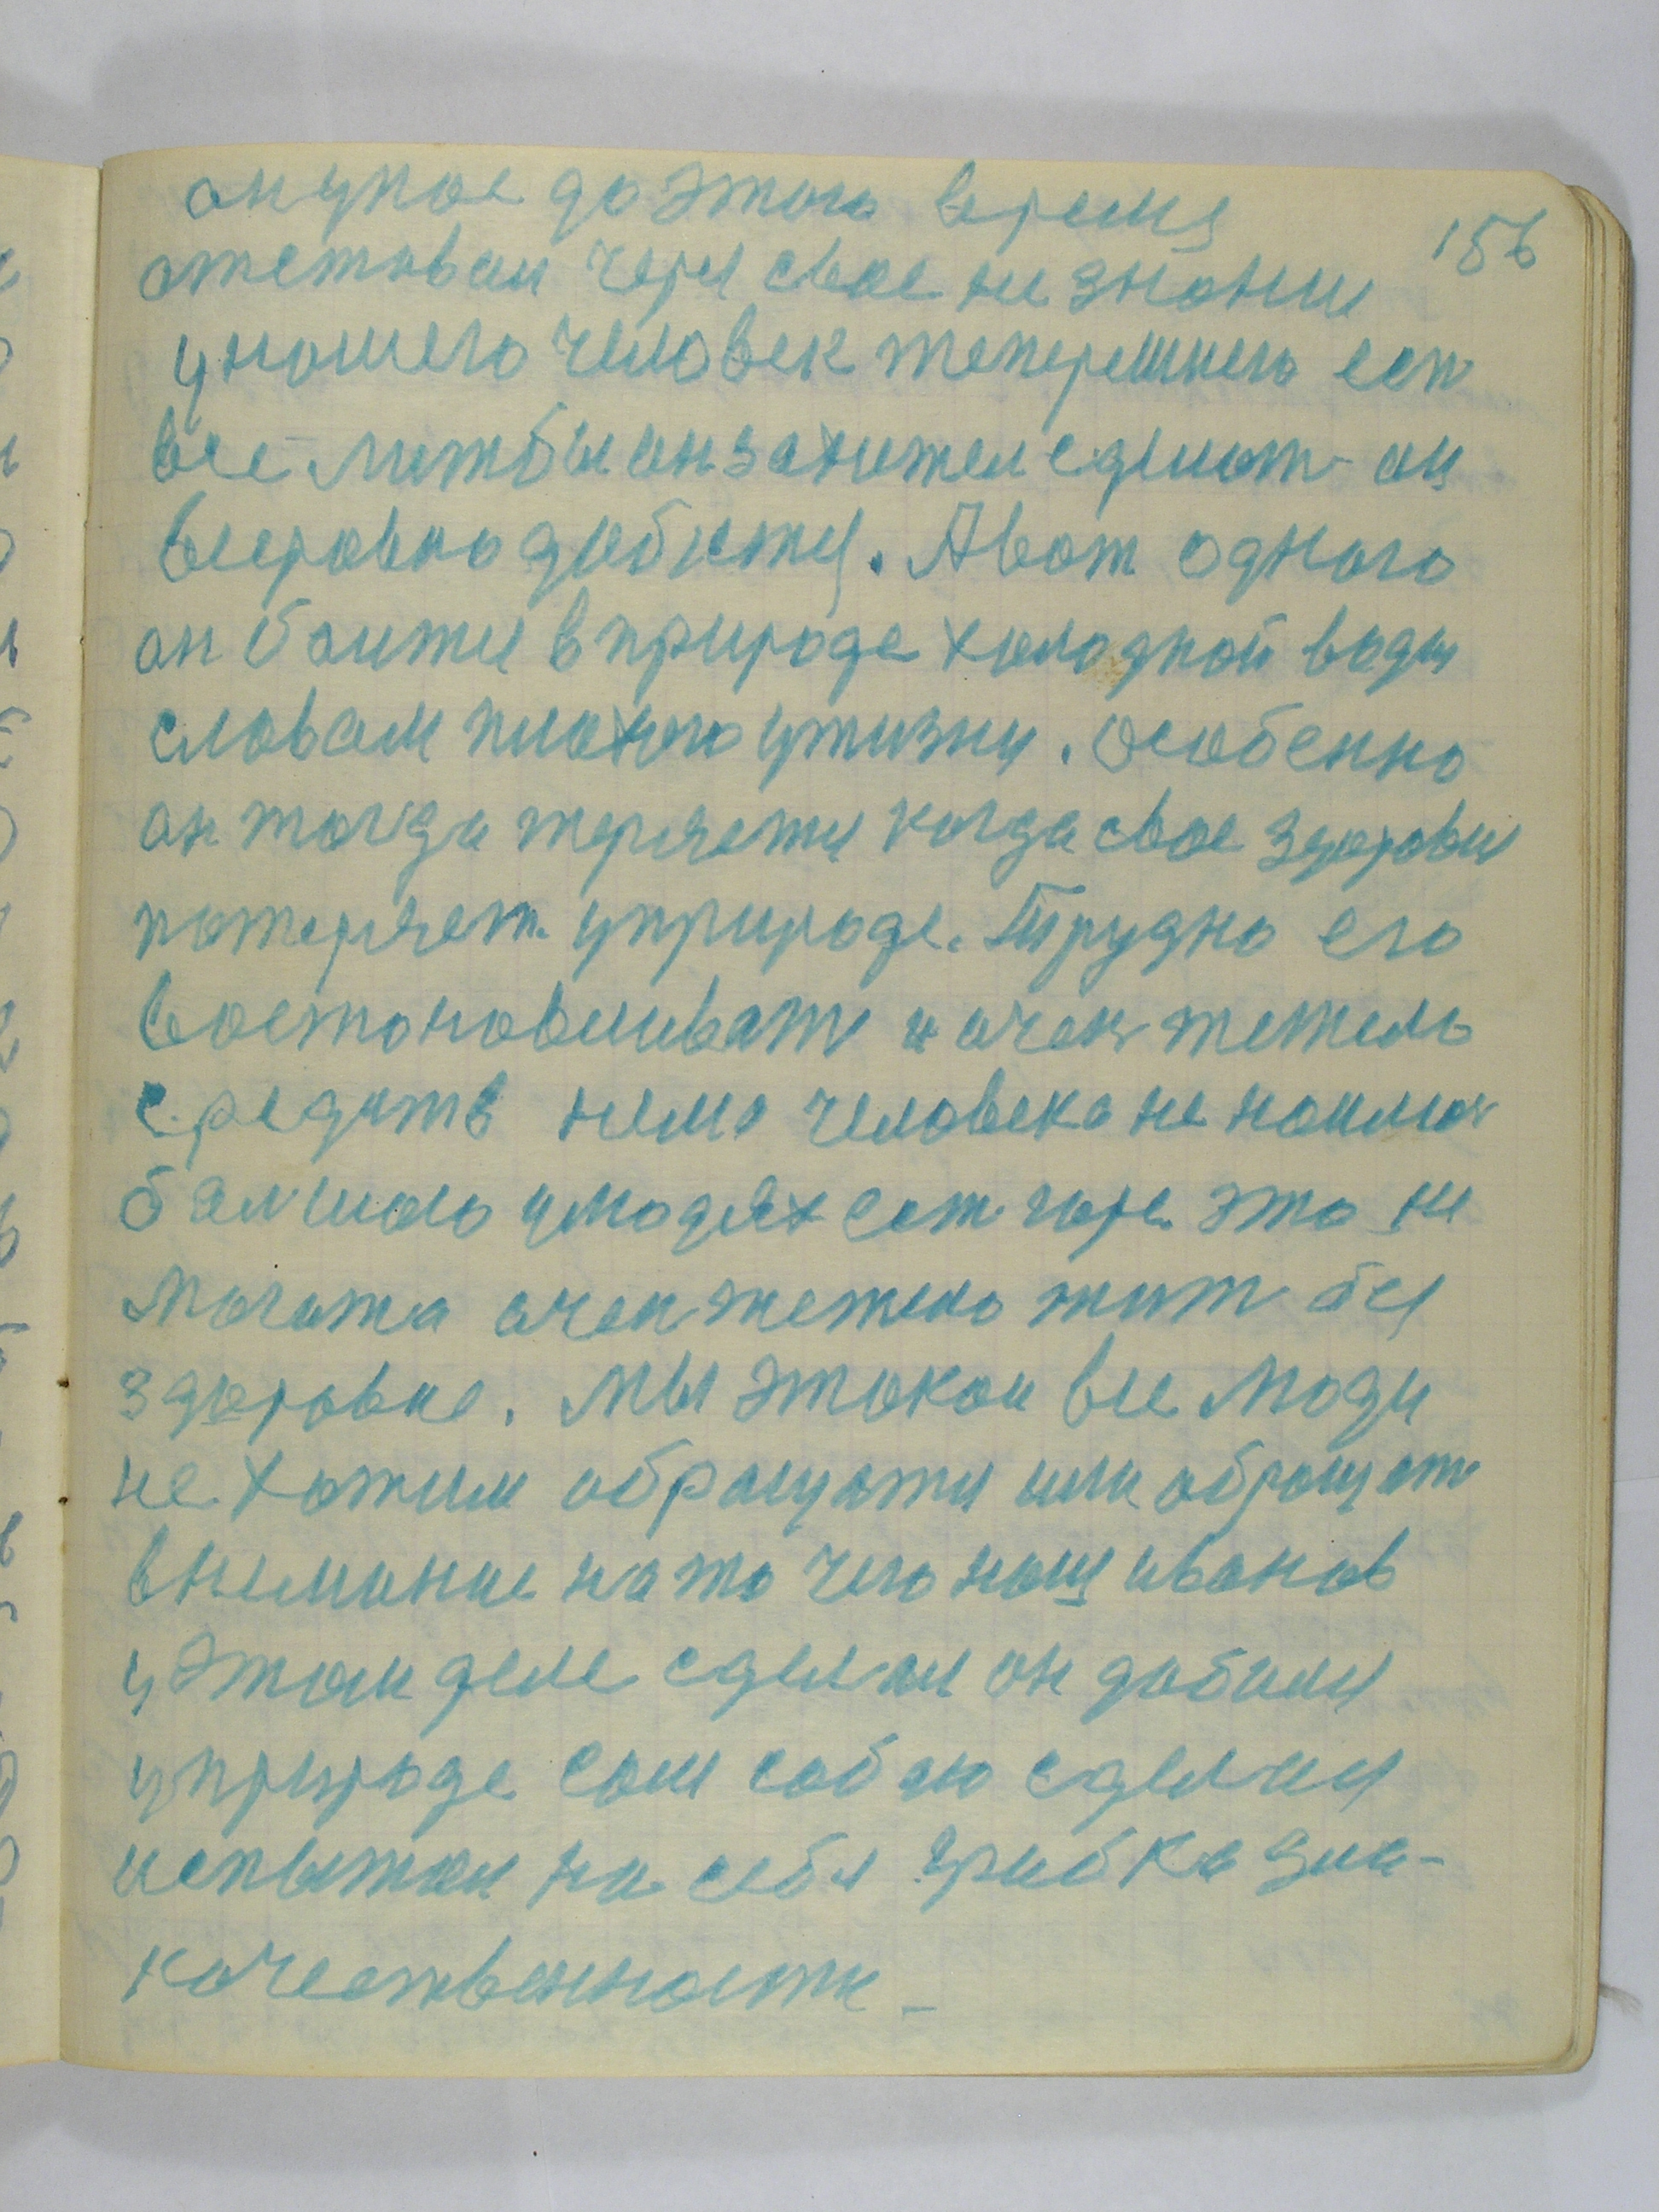 156
он укое до этого время
отстовал через свое не знание
у нашего человек теперешнего есть
все лижбы он захител сделат он
всеровно добютця. А вот одного
он боитця в природе холодной воды
словам плохого у жизни. Особенно
он тогда теряетця когда свое здоровя
потеряет у природе. Трудно его
востоновливать и очен тежело
средств нема человека не поймаи
балшого у людях ест горе это не
могота очен тежело жит без
здоровие. Мы этакои все люди
не хотим обращатця или обращат
внемание на то чего наш иванов
у этом деле сделал он добился
у природе сам собою сделался
испытал на себя грибка зла-
качественности